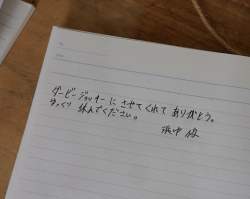 ダービージョッキーにさせてくれてありがとう。
ゆっくり休んでください。
浜中 俊